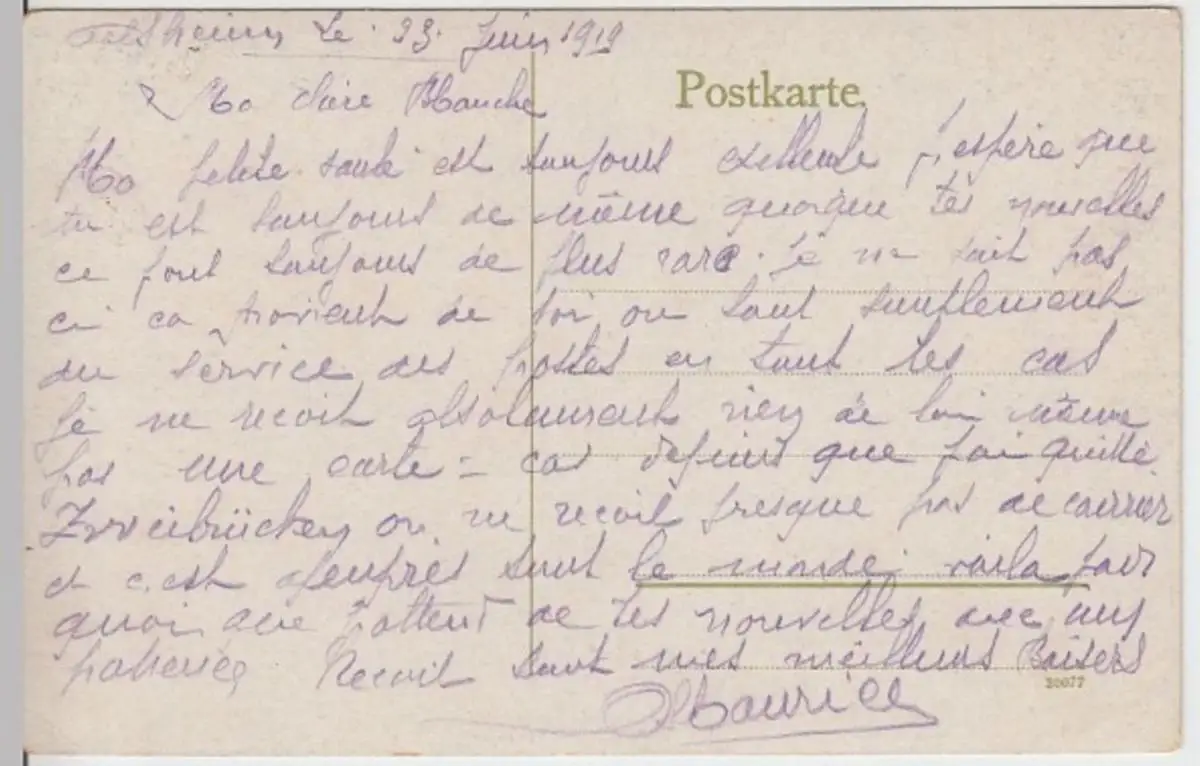 le 23 Juin 1919
Ma chère Blanche
Postkarte.
Ma petite santé est toujours exellente j'espère que
tu est toujours de même quoique tes nouvelles
ce font toujours de plus rare. je ne sait pas
ci ca provient de toi ou tout simplement
du service des postes en tout les cas
je ne recoit absolument rien de toi même
pas une carte = car depuis que j'ai quitté
Zweibrücken on ne recoit presque pas de courrier
et c'est apeuprès tout le monde voila pour
quoi que j'attent de tes nouvelles avec
Recoit tout mes meilleurs Baisers
Maurice